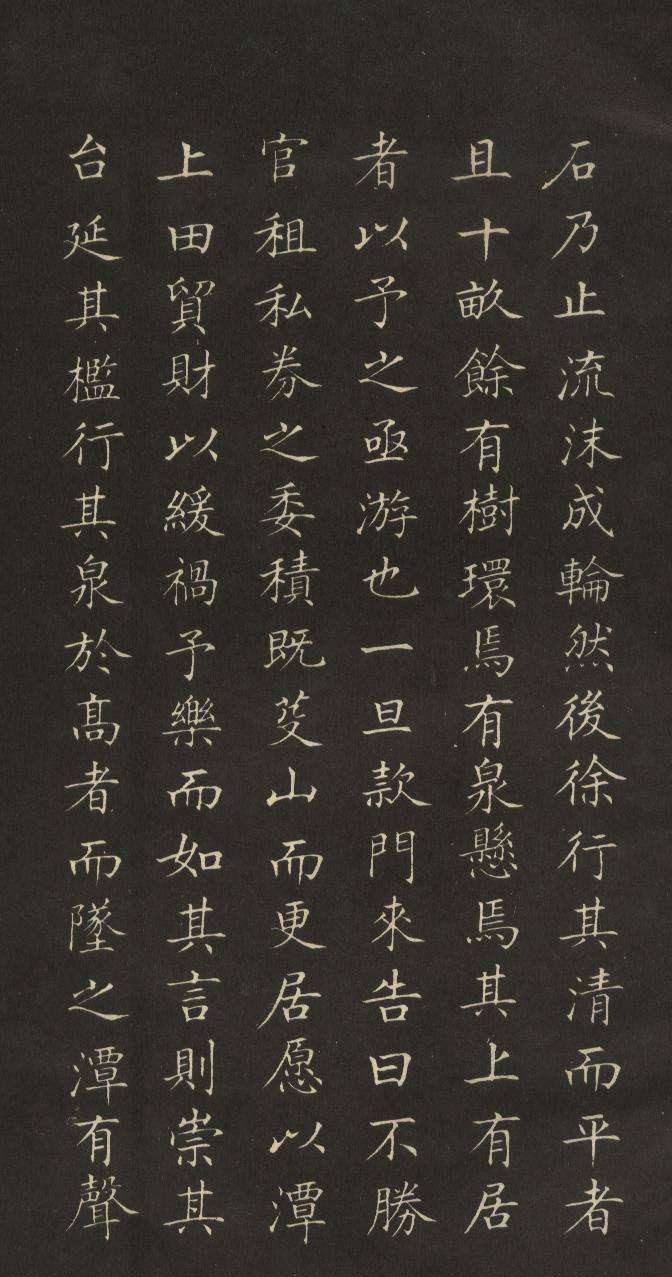 石乃止流沫成輪然後徐行其清而平者
且十畝餘有樹環焉有泉懸焉其上有居
者以予之亟游也一旦款門來告曰不勝
官租私券之委積既芟山而更居愿以潭
上田貿財以緩禍予樂而如其言則崇其
台延其檻行其泉於高者而墜之潭有聲